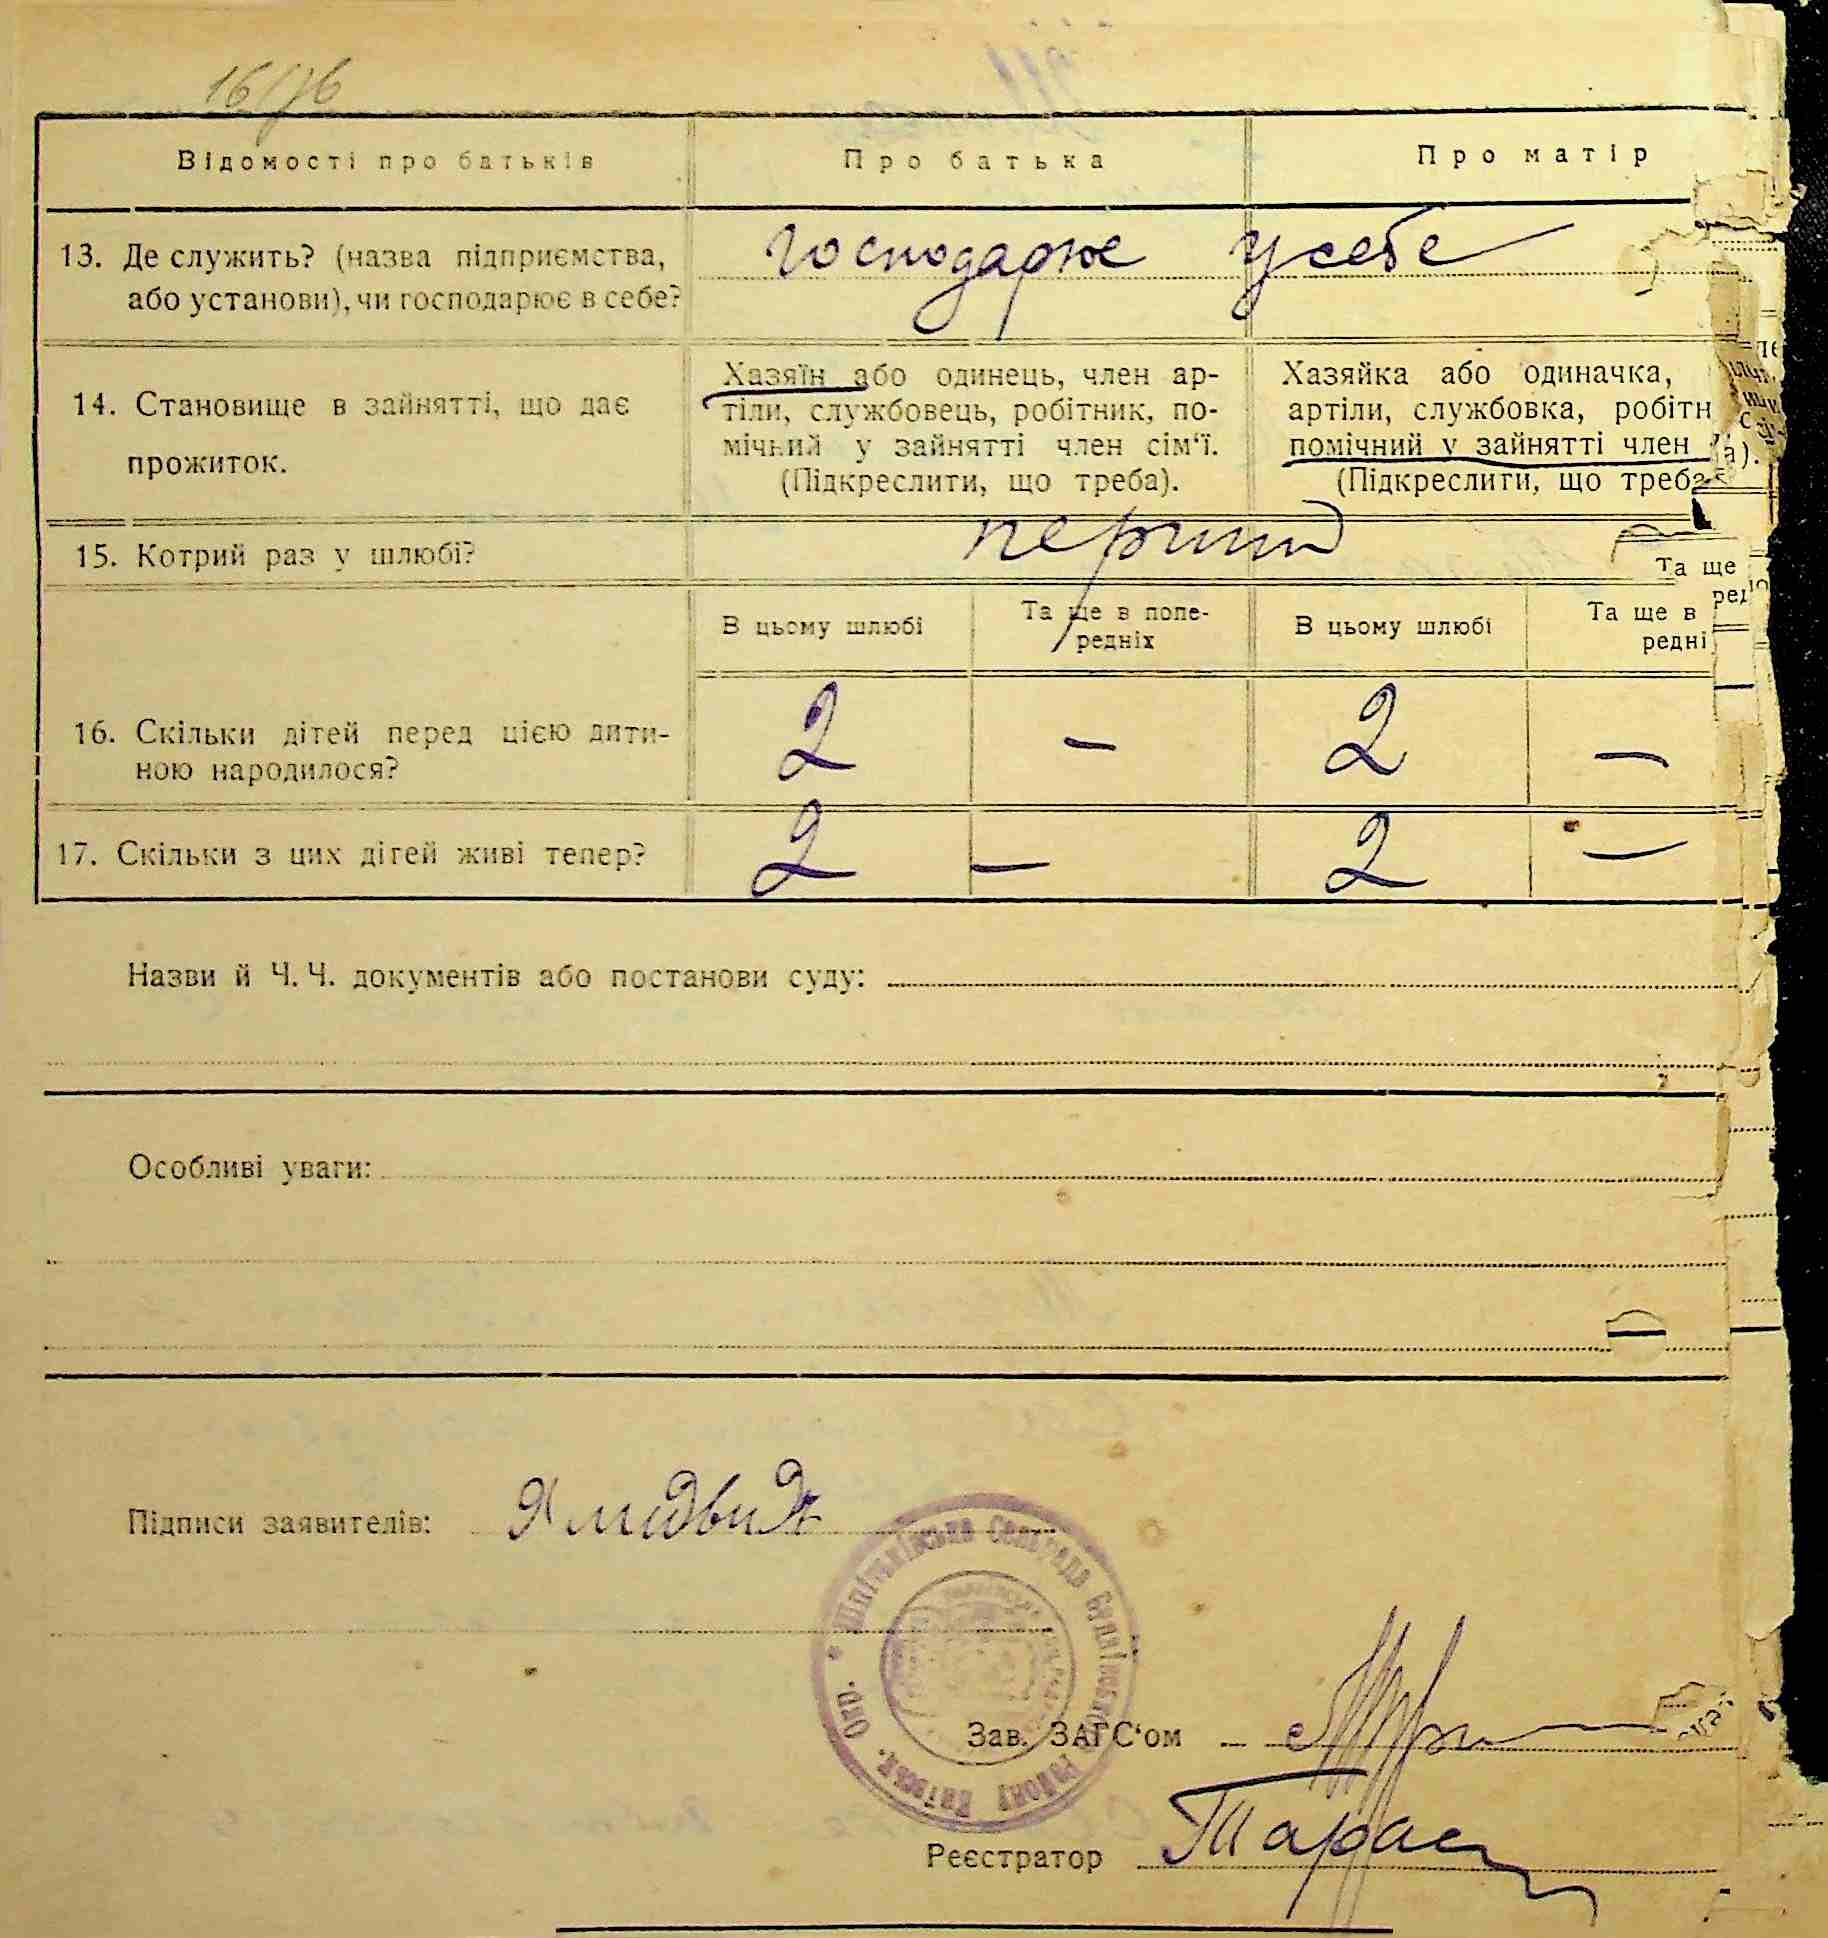 Відомості про батьків
Про батька
Про матір
13. Де служить? (назва підприємства, або установи), чи господарює в себе?
господарює у себе
14. Становище в зайнятті, що дає прожиток.
Хазяїн або одинець, член ар-
тіли, службовець, робітник, по-
мічний у зайнятті член сім'ї.
(Підкреслити, що треба).
Хазяйка або одиначка,
артіли, службовка, робітн
помічний у зайнятті член
(Підкреслити, що треба
15. Котрий раз у шлюбі?
перший
В цьому шлюбі
Та ще в попе-
редніх
В цьому шлюбі
Та ще в
редні
16. Скільки дітей перед цією дити-
ною народилося?
2 – 2 –
17. Скільки з цих дітей живі тепер?
2 – 2 –
Назви й Ч. Ч. документів або постанови суду:
Особливі уваги:
Підписи заявителів:
Зав. ЗАГС'ом
Реєстратор Тарас